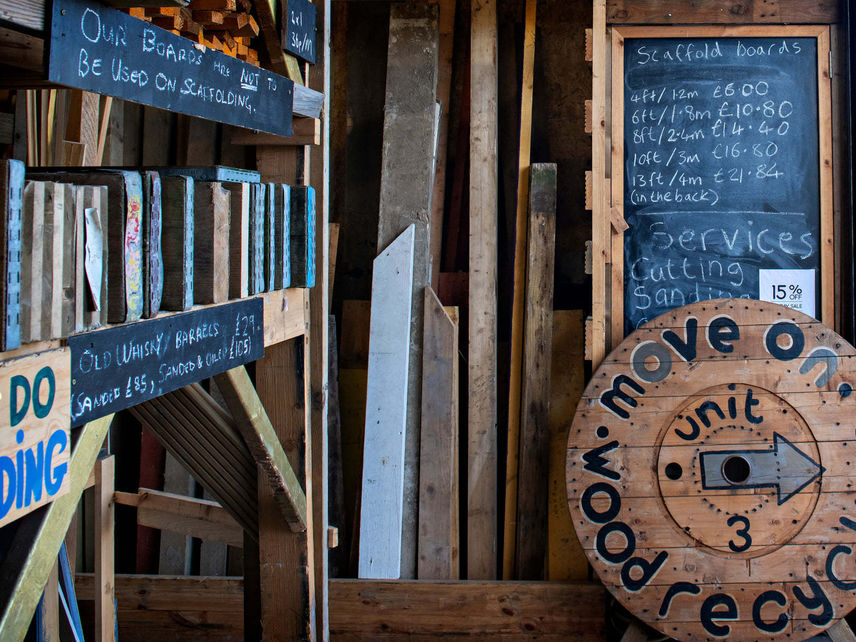 OUR BOARDS ARE NOT TO
BE USED ON SCAFFOLDING.
2x1
36p/M
OLD WHISKY BARRELS £29
(SANDED £85, SANDED & OILED £105)
DO
DING
Scaffold boards
4ft/1.2m £6.00
6ft/1.8m £10.80
8ft/2.4m £14.40
10ft/3m £16.80
13ft/4m £21.84
(in the back)
Services
Cutting
Sanding
15%
OFF
SALE
move on.
wood recyc
unit
3